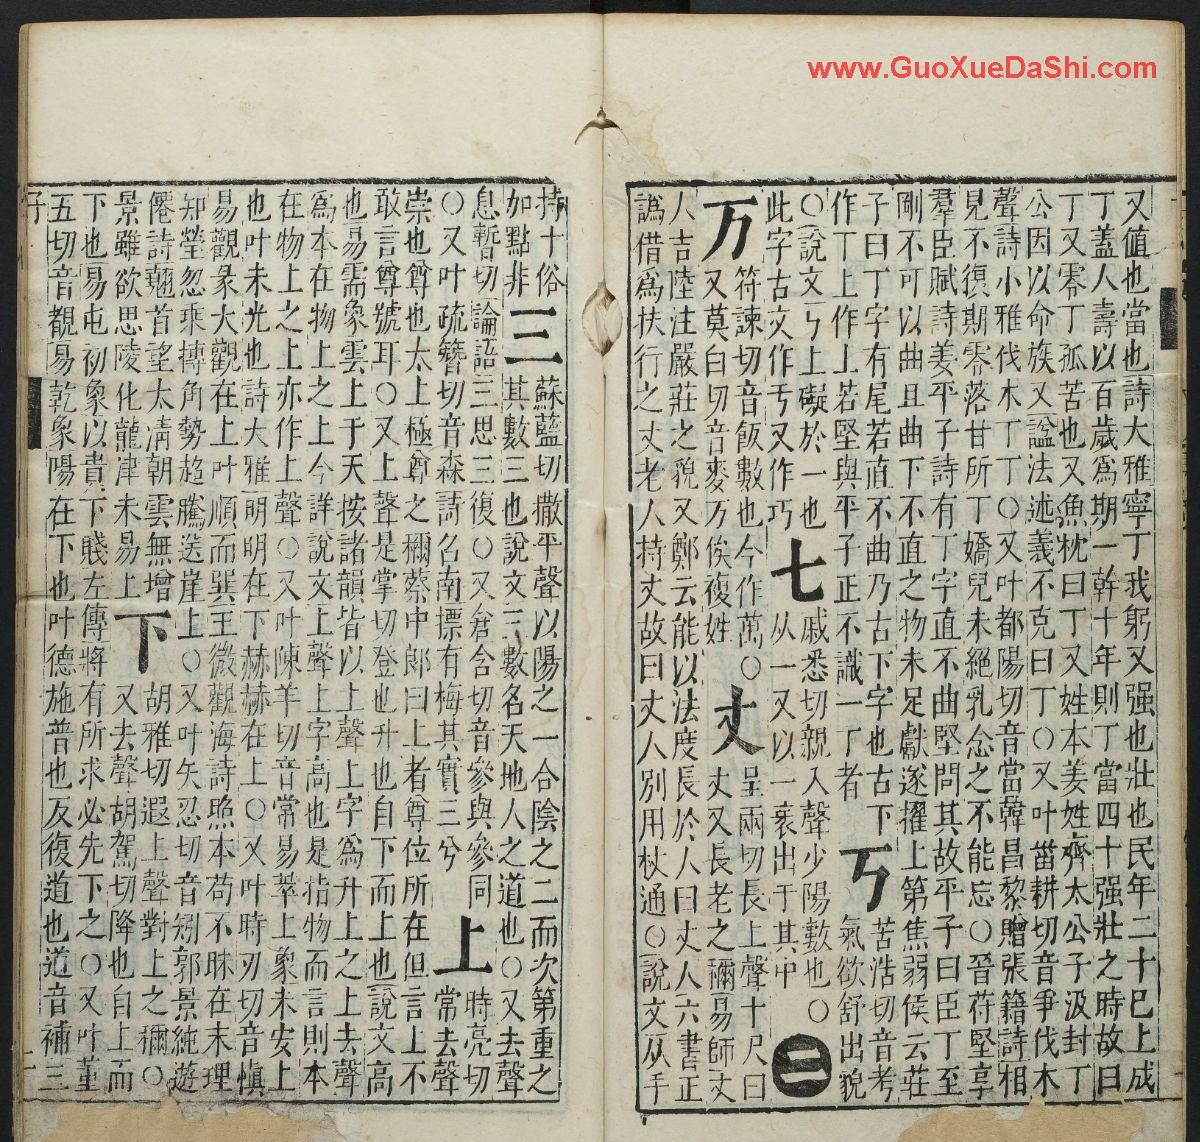 www.GuoXueDaShi.com
又值也當也詩大雅寧丁我躬又强也壯也民年二十巳上成
丁蓋人壽以百歲爲期一幹十年則丁當四十强壯之時故曰
丁又零丁孤苦也又魚枕曰丁又姓本姜姓齊太公子汲封丁
公因以命族又諡法述義不克曰丁〇又叶甾耕切音爭伐木
聲詩小雅伐木丁丁〇又叶都陽切音當韓昌黎贈張籍詩相
見不復期零落甘所丁嬌兒未絕乳念之不能忘〇晉苻堅享
羣臣賦詩姜平子詩有丁字直不曲堅問其故平子曰臣丁至
剛不可以曲且曲下不直之物未足獻遂擢上第焦弱侯云莊
子曰丁字有尾若直不曲乃古下字也古下
作丅上作丄若堅與平子正不識一丁者
丂
苦浩切音考
氣欲舒出貌
〇說文丂上礙於一也
此字古文作亐又作巧
七
戚悉切親入聲少陽數也〇
从一又以一衺出于其中
二
万
符諫切音飯數也今作萬〇
又莫白切音麥万俟複姓
丈
呈兩切長上聲十尺曰
丈又長老之稱易師丈
人吉陸注嚴莊之貌又鄭云能以法度長於人曰丈人六書正
譌借爲扶行之丈老人持丈故曰丈人別用杖通〇說文从手
持十俗
加點非
三
蘇藍切撒平聲以陽之一合陰之二而次第重之
其數三也說文三數名天地人之道也〇又去聲
息暫切論語三思三復〇又倉含切音參與參同
〇又叶疏簪切音森詩召南摽有梅其實三兮
上
時亮切
常去聲
崇也尊也太上極尊之稱蔡中郎曰上者尊位所在但言上不
敢言尊號耳〇又上聲是掌切登也升也自下而上也說文高
也易需象雲上于天按諸韻皆以上聲上字爲升上之上去聲
爲本在物上之上今詳說文上聲上字高也是指物而言則本
在物上之上亦作上聲〇又叶陳羊切音常易萃上象未安上
也叶未光也詩大雅明明在下赫赫在上〇又叶時刃切音愼
易觀彖大觀在上叶順而巽王微觀海詩照本苟不昧在末理
知瑩忽乘摶角勢超騰送崖上〇又叶矢忍切音矧郭景純遊
僊詩翹首望太淸朝雲無增
景雖欲思陵化龍津未易上
下
胡雅切遐上聲對上之稱〇
又去聲胡駕切降也自上而
下也易屯初象以貴下賤左傳將有所求必先下之〇又叶董
五切音覩易乾象陽在下也叶德施普也反復道也道音補三
子